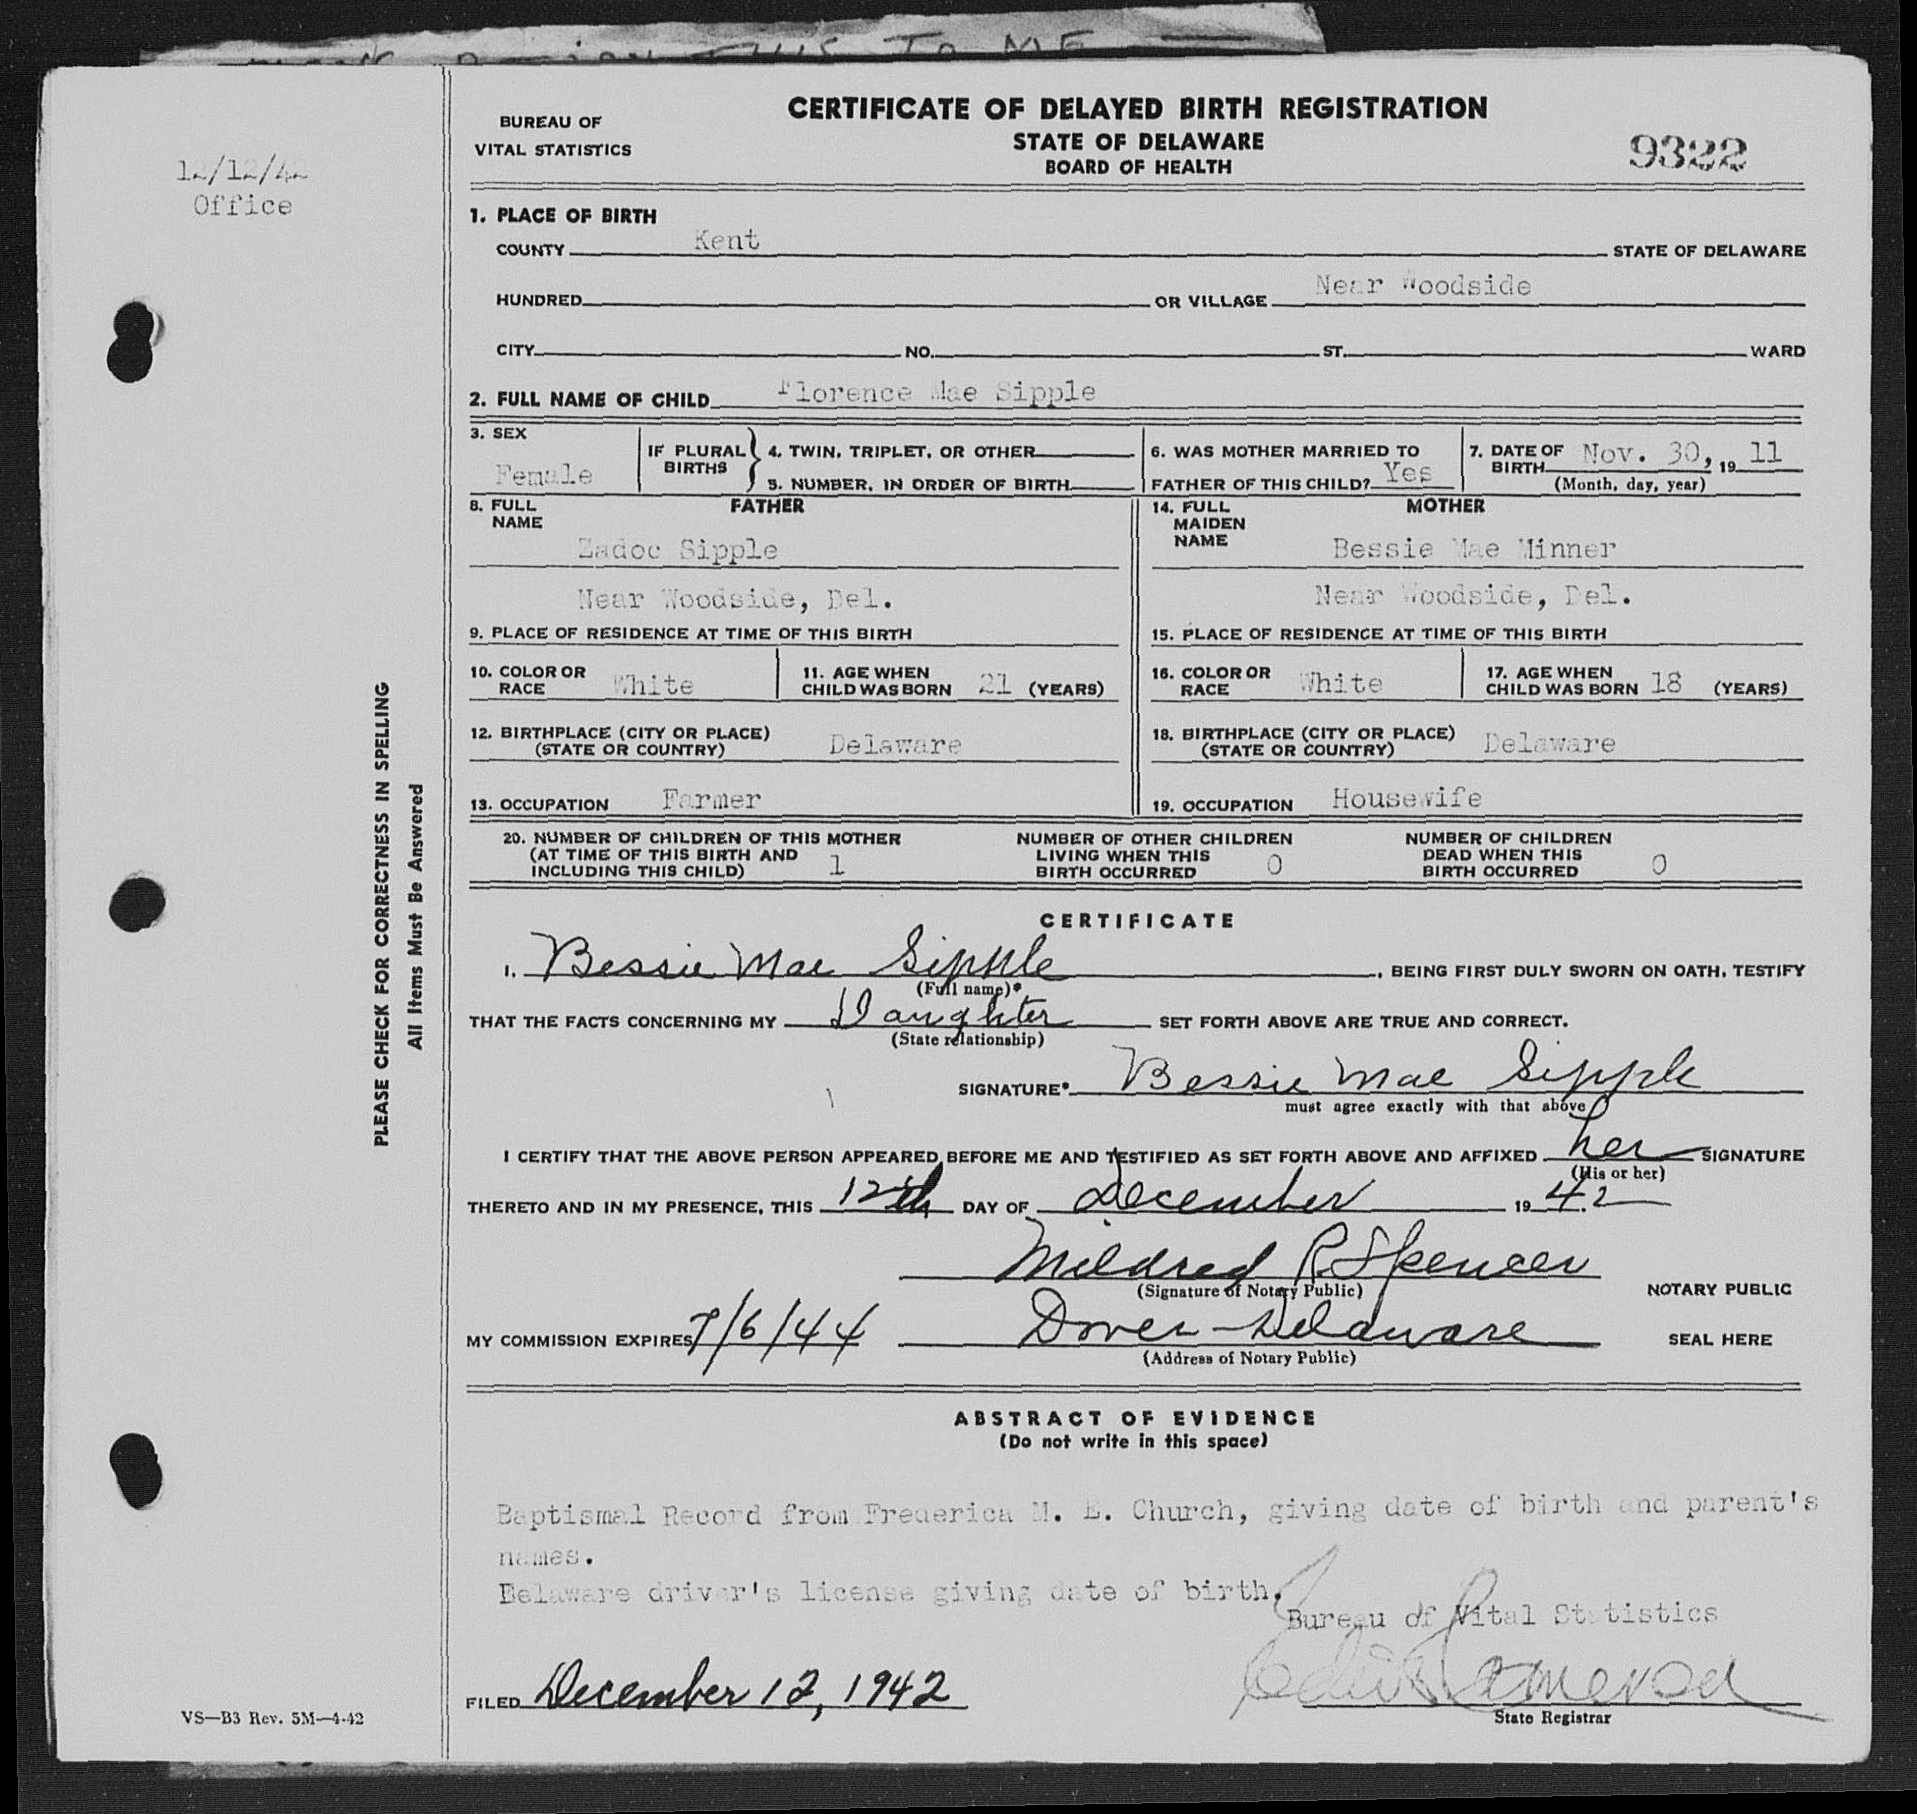 THIS TO ME
BUREAU OF
VITAL STATISTICS
CERTIFICATE OF DELAYED BIRTH REGISTRATION
STATE OF DELAWARE
BOARD OF HEALTH
9322
12/12/42
Office
1. PLACE OF BIRTH
COUNTY Kent STATE OF DELAWARE
HUNDRED OR VILLAGE Near Woodside
CITY NO. ST. WARD
2. FULL NAME OF CHILD Florence Mae Sipple
3. SEX Female
IF PLURAL BIRTHS } 4. TWIN, TRIPLET, OR OTHER
5. NUMBER, IN ORDER OF BIRTH
6. WAS MOTHER MARRIED TO
FATHER OF THIS CHILD? Yes
7. DATE OF BIRTH Nov. 30, 1911
(Month, day, year)
8. FULL NAME FATHER
Zadoc Sipple
Near Woodside, Del.
9. PLACE OF RESIDENCE AT TIME OF THIS BIRTH
10. COLOR OR RACE White
11. AGE WHEN CHILD WAS BORN 21 (YEARS)
12. BIRTHPLACE (CITY OR PLACE)
(STATE OR COUNTRY) Delaware
13. OCCUPATION Farmer
14. FULL MAIDEN NAME MOTHER
Bessie Mae Minner
Near Woodside, Del.
15. PLACE OF RESIDENCE AT TIME OF THIS BIRTH
16. COLOR OR RACE White
17. AGE WHEN CHILD WAS BORN 18 (YEARS)
18. BIRTHPLACE (CITY OR PLACE)
(STATE OR COUNTRY) Delaware
19. OCCUPATION Housewife
20. NUMBER OF CHILDREN OF THIS MOTHER
(AT TIME OF THIS BIRTH AND
INCLUDING THIS CHILD) 1
NUMBER OF OTHER CHILDREN
LIVING WHEN THIS
BIRTH OCCURRED 0
NUMBER OF CHILDREN
DEAD WHEN THIS
BIRTH OCCURRED 0
CERTIFICATE
I, Bessie Mae Sipple, BEING FIRST DULY SWORN ON OATH, TESTIFY
(Full name)*
THAT THE FACTS CONCERNING MY Daughter SET FORTH ABOVE ARE TRUE AND CORRECT.
(State relationship)
SIGNATURE* Bessie Mae Sipple
must agree exactly with that above
I CERTIFY THAT THE ABOVE PERSON APPEARED BEFORE ME AND TESTIFIED AS SET FORTH ABOVE AND AFFIXED her SIGNATURE
(His or her)
THERETO AND IN MY PRESENCE, THIS 12th DAY OF December 1942
Mildred R. Spencer
(Signature of Notary Public) NOTARY PUBLIC
MY COMMISSION EXPIRES 7/6/44 Dover Delaware SEAL HERE
(Address of Notary Public)
ABSTRACT OF EVIDENCE
(Do not write in this space)
Baptismal Record from Frederica M. E. Church, giving date of birth and parent's
names.
Delaware driver's license giving date of birth.
Bureau of Vital Statistics
FILED December 12, 1942
State Registrar
VS—B3 Rev. 5M—4-42
PLEASE CHECK FOR CORRECTNESS IN SPELLING
All Items Must Be Answered